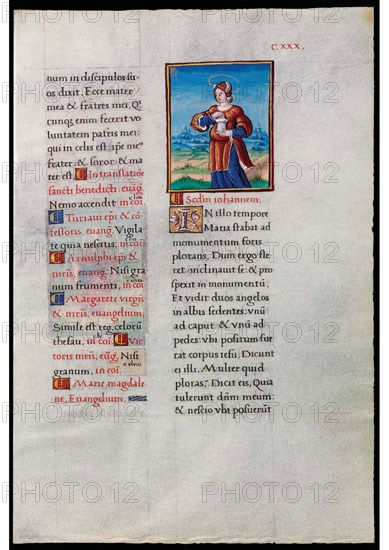 C. XXX.
num in discipulos su
os dixit. Ecce mater
mea & fratres mei. Qi
cunqȝ enim fecerit vo
luntatem patris mei:
qui in celis est. ipse me9
frater: & soror: & ma
ter est. In translatiõe
sancti benedicti: euãg.
Nemo accendit in cõi.
Turiani epi & cõ
fessoris, euang. Vigila
te quia nescitis, in cõi.
Arnulphi epi &
mris, euang. Nisi gra
num frumenti, in cõi.
Margarete virgis
& mris, euangelium.
Simile est reg. celorũ
thesau, in cõi. Vic
toris mris, eug. Nisi
granum, in cõi.
Marie magdale
ne, Euangelium.
Scdm iohannem.
IN illo tempore
Maria stabat ad
monumentum foris
plorans, Dum ergo fle
ret: inclinauit se: & pro
spexit in monumentũ:
Et vidit duos angelos
in albis sedentes: vnũ
ad caput & vnũ ad
pedes: vbi positum fue
rat corpus iesu: Dicunt
ei illi, Mulier quid
ploras? Dicit eis, Quia
tulerunt dñm meum:
& nescio vbi posuerũt
PHOTO 12